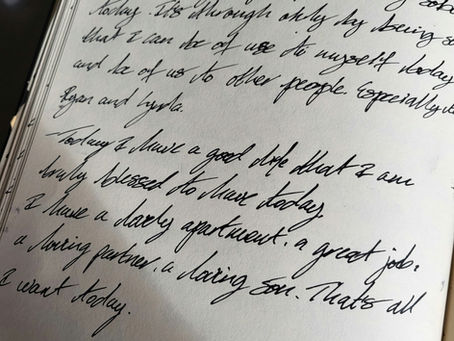 today. It's through only by being sobe
that I can be of use to myself today
and be of us to other people. Especially
Ryan and Lynda.
Today I have a good life that I am
truly blessed to have today
I have a lovely apartment. a great job.
a loving partner. a loving son. That's all
I want today.